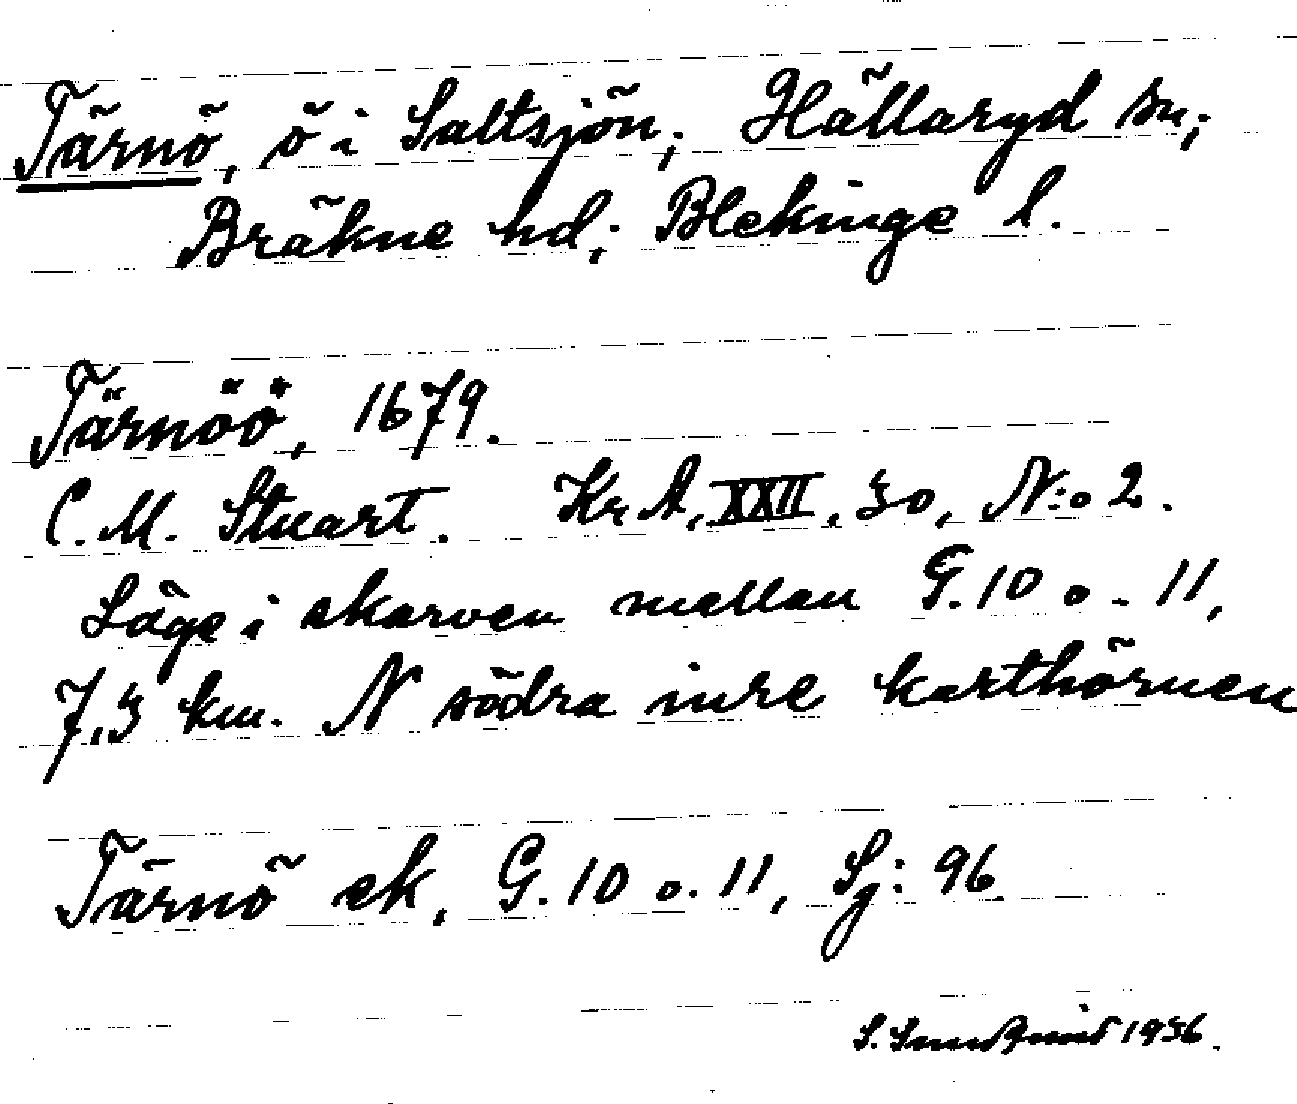 Tärnö, ö i Saltsjön; Hällaryd sn;
Bräkne hd; Blekinge l.
Tärnöö, 1679.
C. M. Stuart. Kr A, XXII, 30, N:o 2.
Läge i skarven mellan G. 10 o. 11,
7,3 km. N södra inre karthörnen
Tärnö ek, G. 10 o. 11, Sj: 96.
S. 1936.